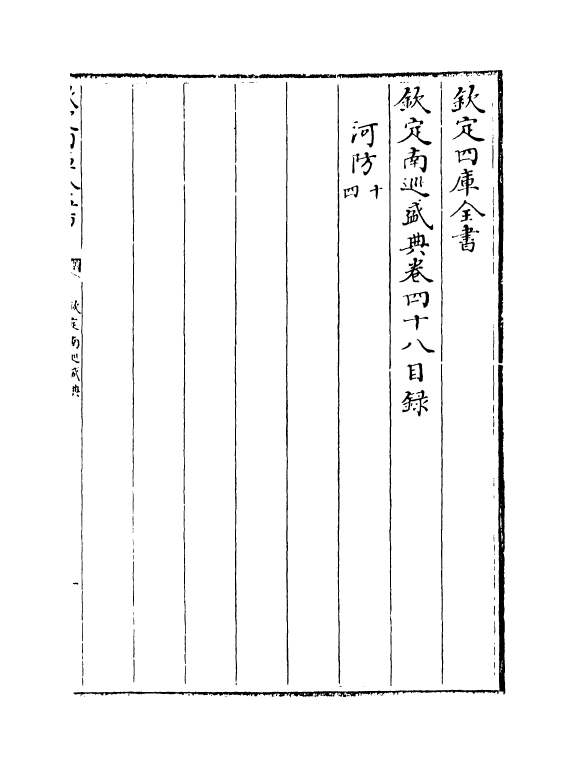 欽定四庫全書
欽定南巡盛典卷四十八目録
河防十四
欽定南巡盛典